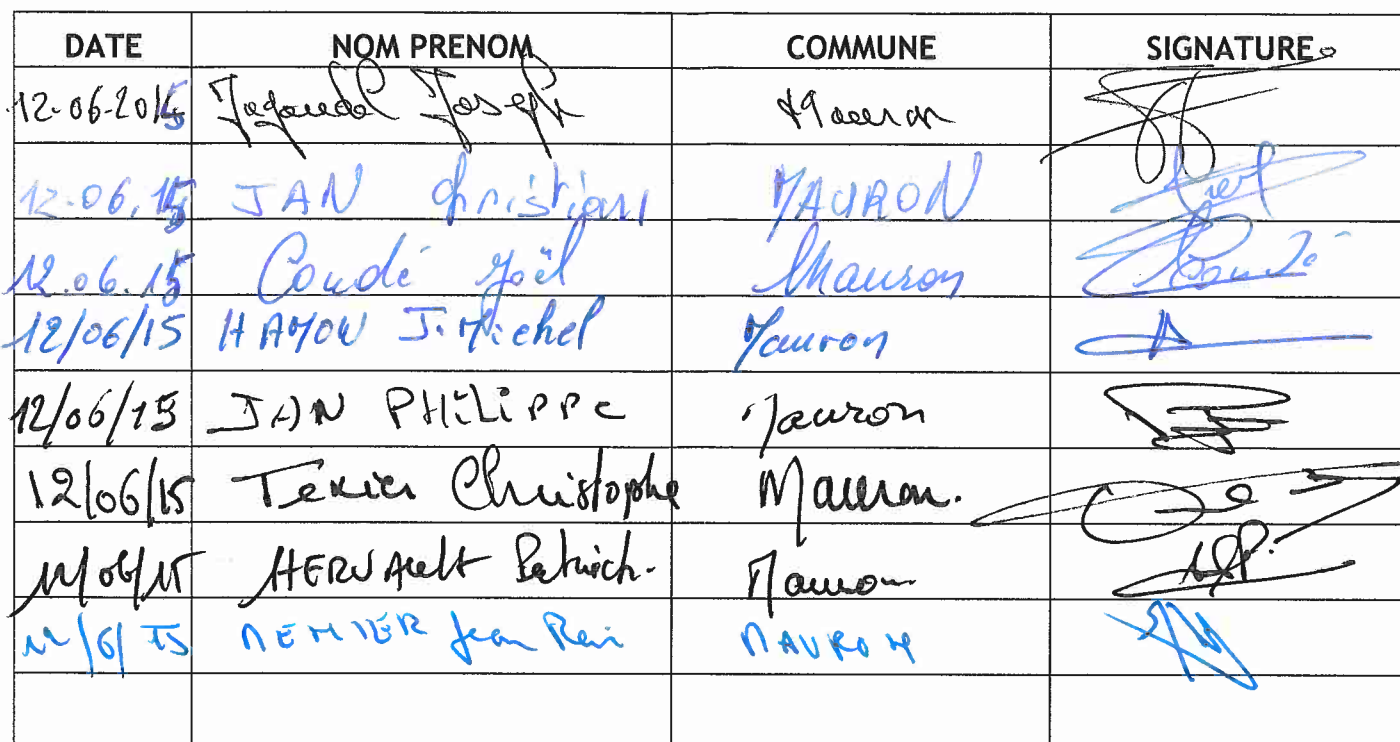 DATE NOM PRENOM COMMUNE SIGNATURE
12-06-2015 Joseph Mauron
12.06.15 JAN Christian MAURON
12.06.15 Coudé Joël Mauron Coudé
12/06/15 HAMON J. Michel Mauron
12/06/15 JAN PHILIPPE Mauron
12/06/15 Texier Christophe Mauron.
12/06/15 HERVAult Patrick. Mauron
12/6/15 Jean MAURON